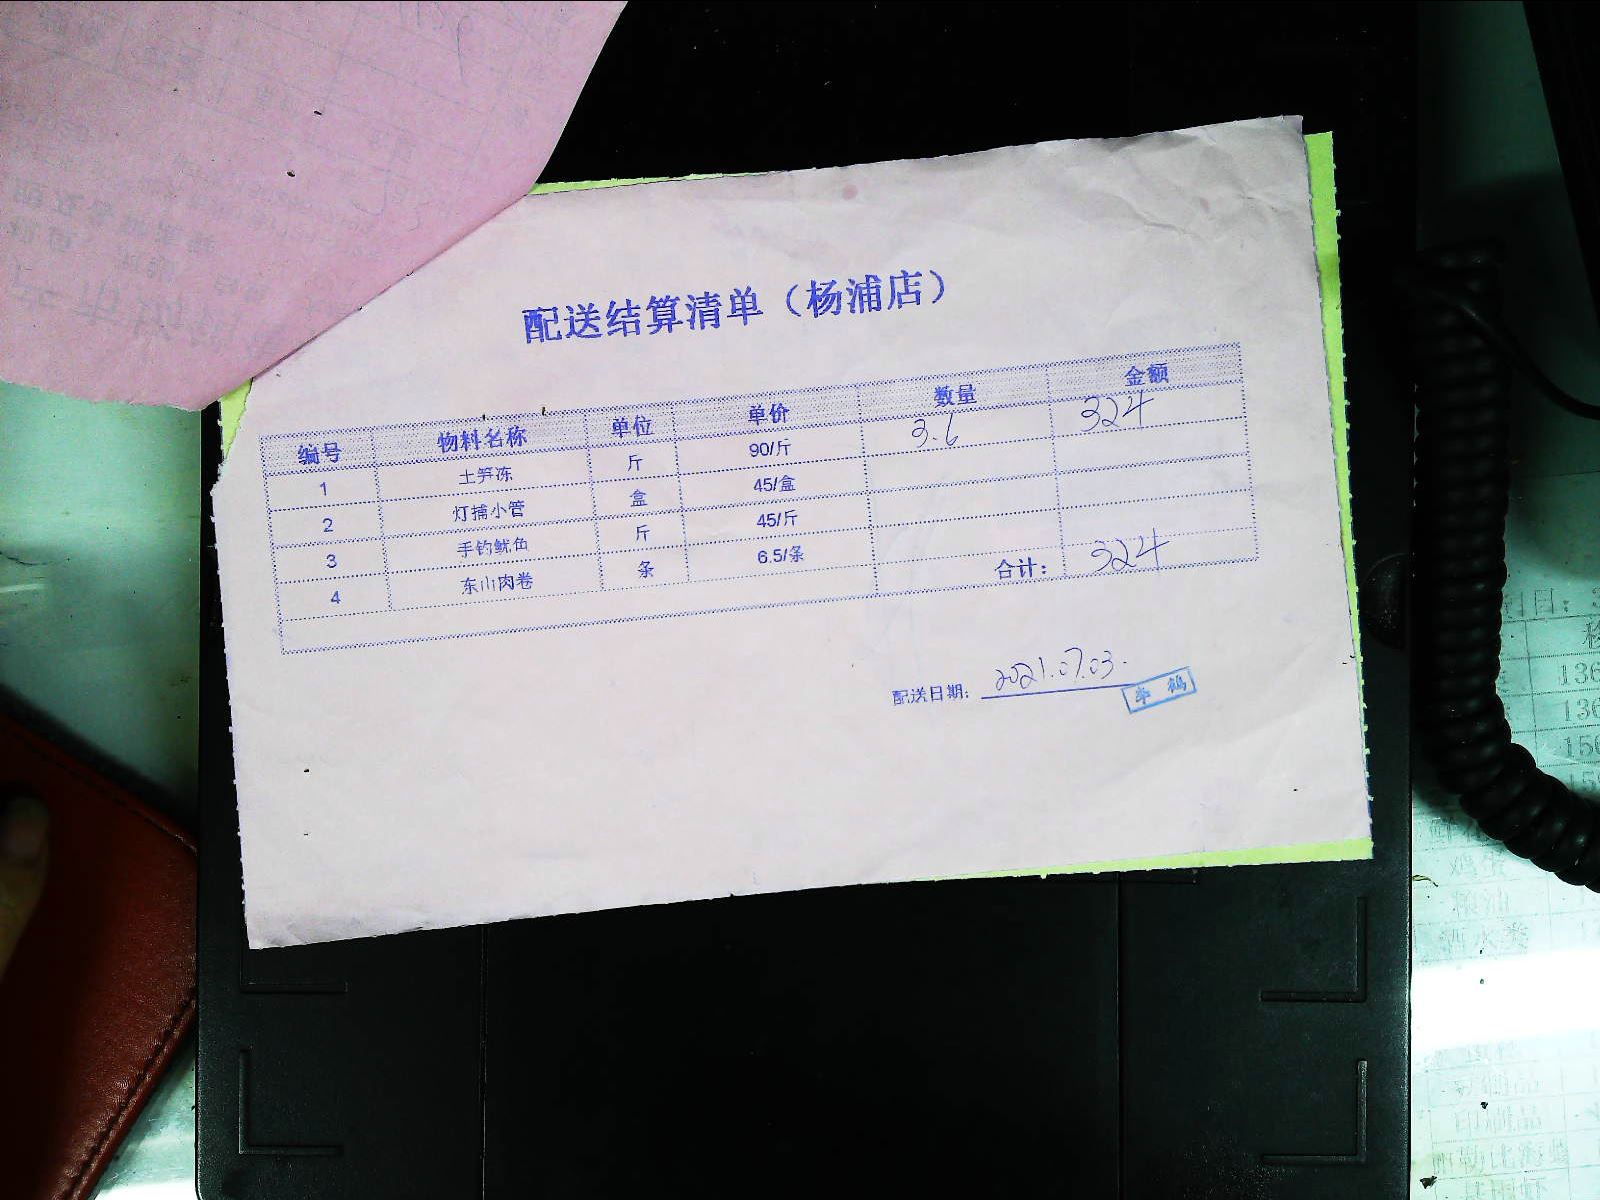 配送结算清单（杨浦店）
编号 物料名称 单位 单价 数量 金额
1 土笋冻 斤 90/斤 3.6 324
2 灯捕小管 盒 45/盒
3 手钓鱿鱼 斤 45/斤
4 东山肉卷 条 6.5/条
合计： 324
配送日期： 2021.07.03.
李 鹤
136
136
150
鸡蛋
粮油
酒水类
印刷品